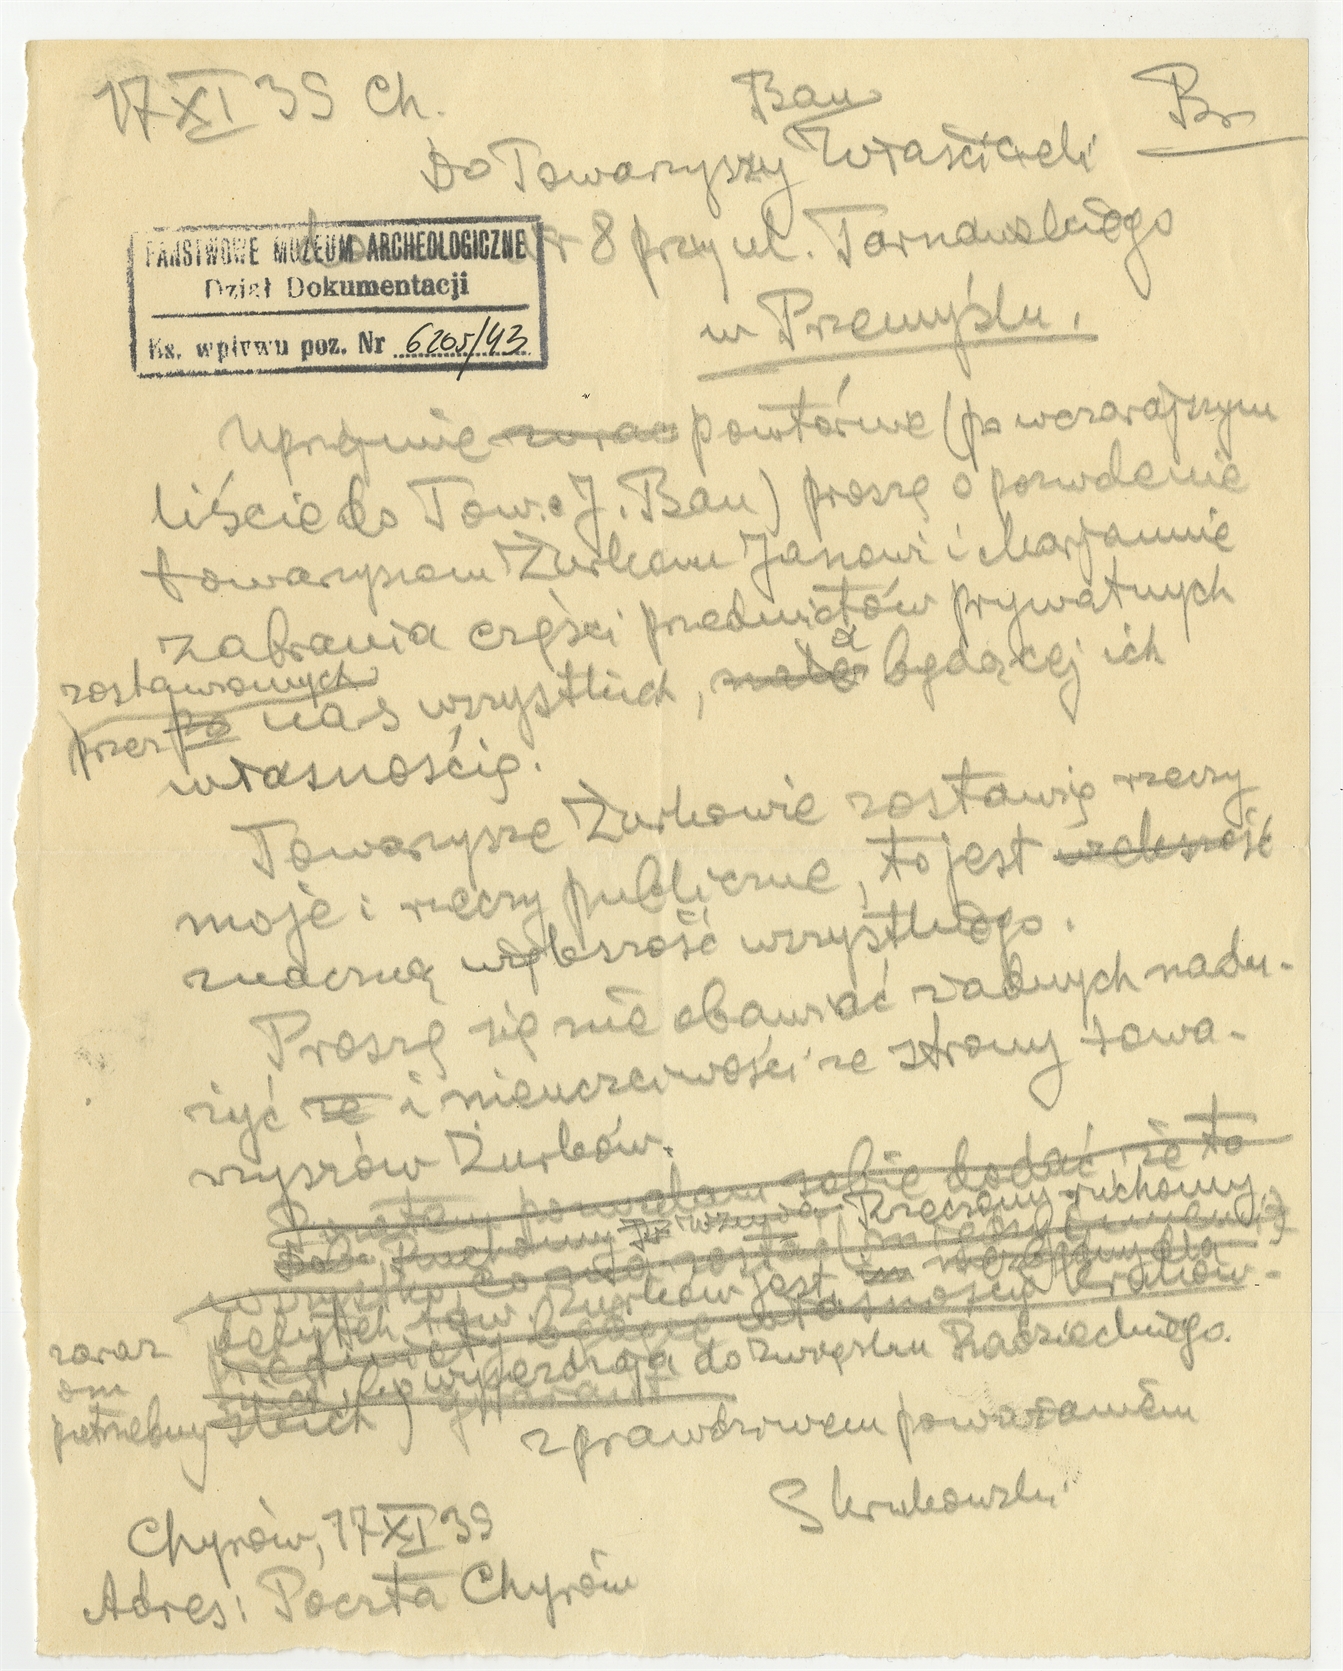 17 XI 39 Ch.
Bau
Br
Do Towarzyszy Właścicieli
Nr 8 przy ul. Tarnawskiego
w Przemyślu.
PAŃSTWOWE MUZEUM ARCHEOLOGICZNE
Dział Dokumentacji
Ks. wpływu poz. Nr 6205/43
Uprzejmie zwrac powtórne (po wczorajszym
liście do Tow. J. Bau) proszę o pozwolenie
towarzyszom Żurkom Janowi i Marjannie
zabrania części przedmiotów prywatnych
zostawionych
przez po nas wszystkich, a będącej ich
własnością.
Towarzysze Żurkowie zostawią rzeczy
moje i rzeczy publiczne, to jest większość
znaczną większość wszystkiego.
Proszę się nie obawiać żadnych nadu-
żyć ze i nieuczciwości ze strony towa-
rzyszów Żurków.
Pozatem pozwalam sobie dodać że to
Rzeczony ruchomy
wszystko, co zostać
tow. Żurków jest niezbędny dla
przedmioty będące własnością Kraków-
zaraz
om
potrzebny
wyjeżdżają do Związku Radzieckiego.
z prawdziwem poważaniem
Skrukowski
Chyrów, 17 XI 39
Adres: Poczta Chyrów